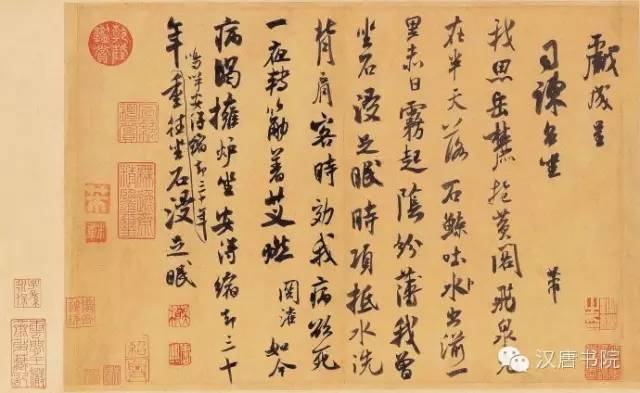 戲成呈
司諫台坐
芾
我思岳麓抱黃閣飛泉元
在半天落石鯨吐水出湔一
里赤日霧起陰紛薄我曾
坐石浸足眠時項抵水洗
背肩客時效我病欲死
一夜轉筋著艾燃 關淮 如今
病渴擁爐坐安得縮却三十
嗚呼安得縮却三十年
年重往坐石浸足眠
汉唐书院